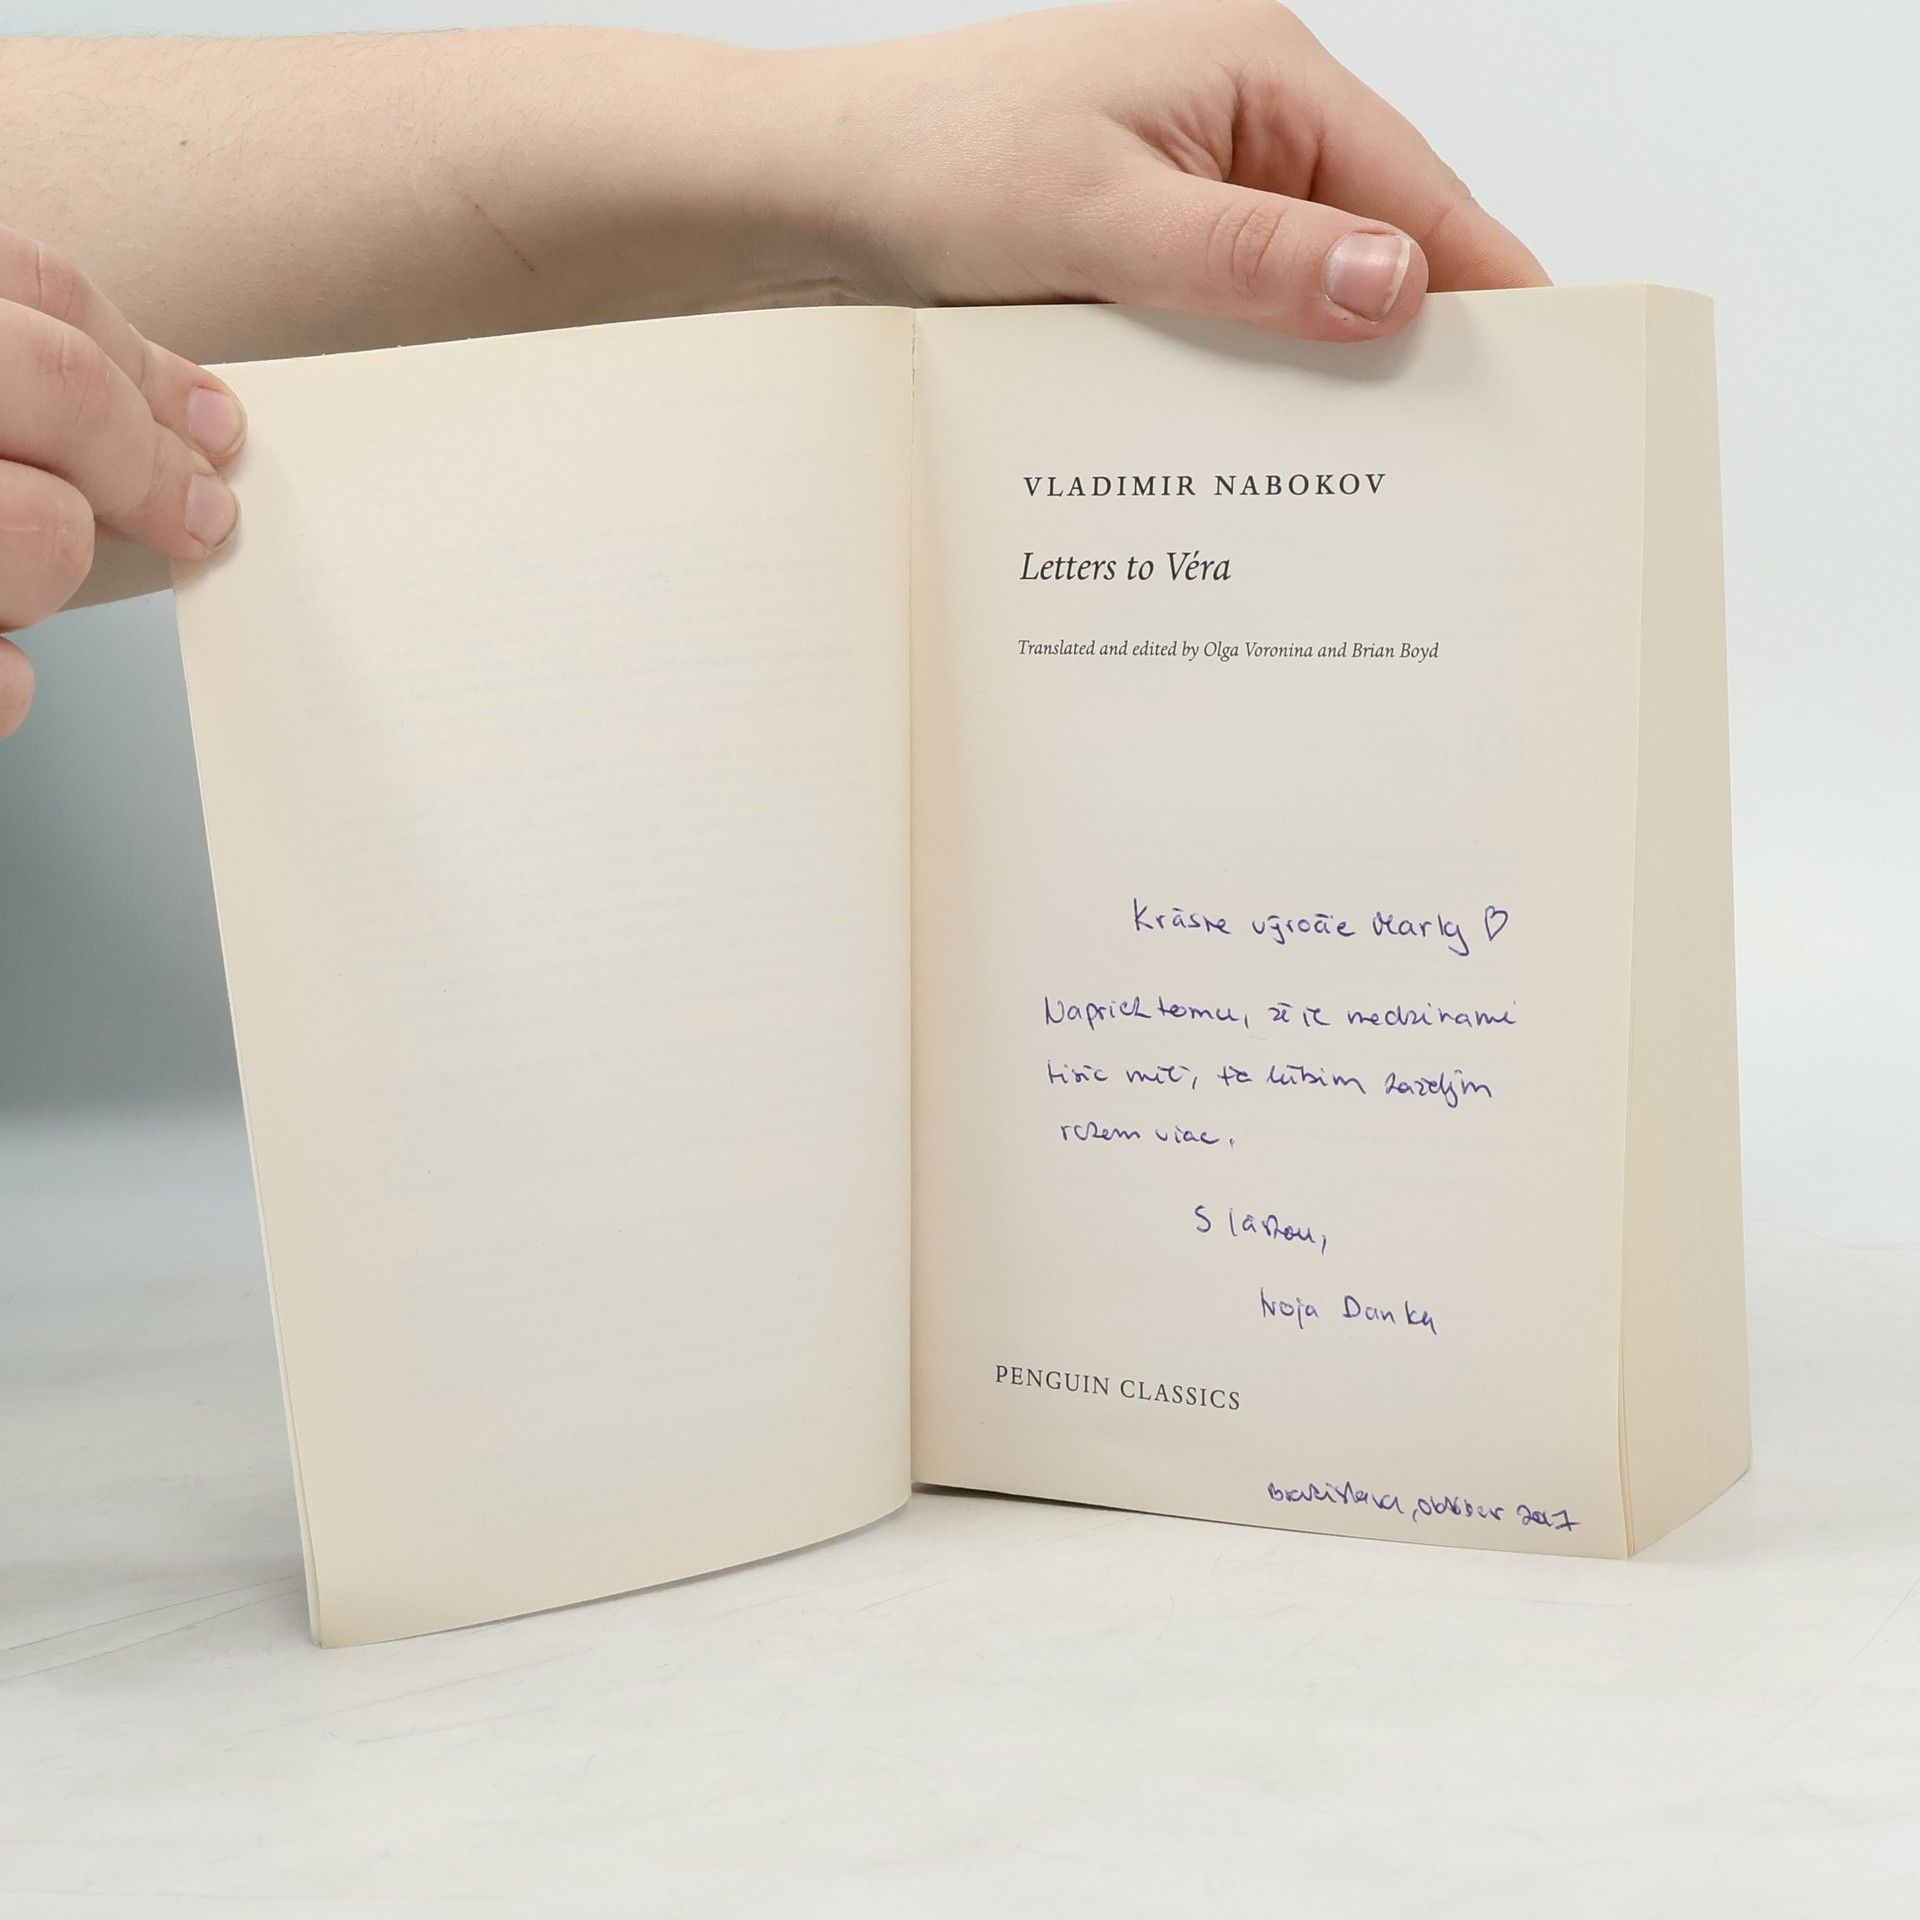 VLADIMIR NABOKOV
Letters to Véra
Translated and edited by Olga Voronina and Brian Boyd
Krásne výročie Marky ♡
Napriek tomu, že je medzi nami
tisíc míľ, ťa ľúbim každým
rokom viac.
S láskou,
tvoja Danka
PENGUIN CLASSICS
Bratislava, október 2017